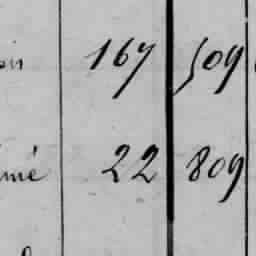 167 509
22 809